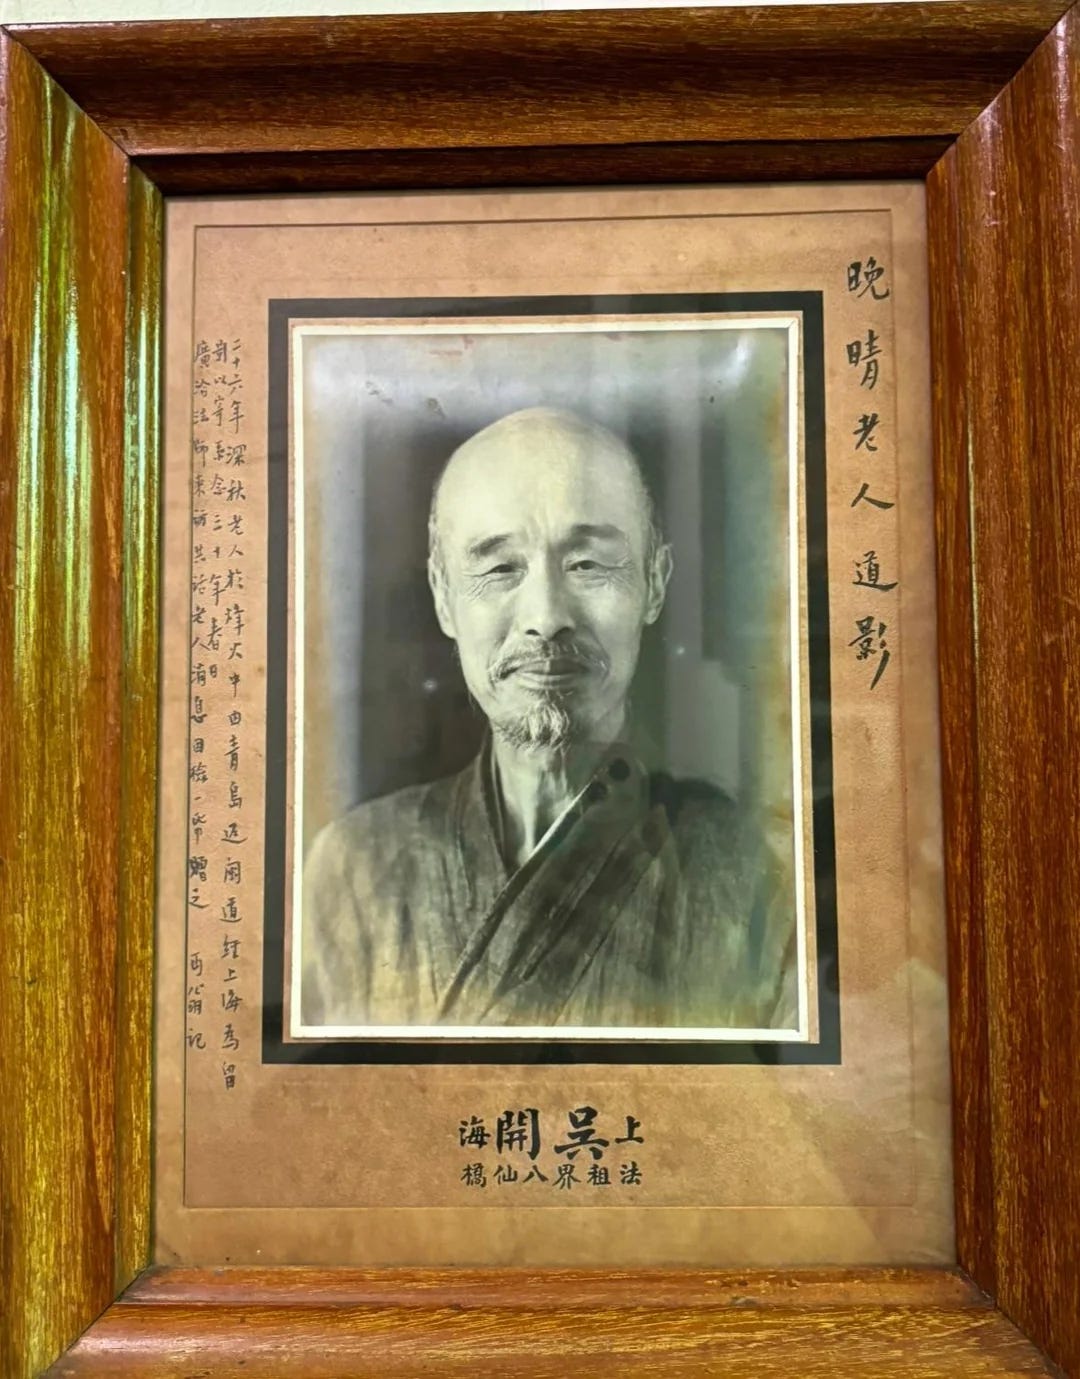 晚晴老人道影
二十六年深秋老人於烽火中由青島返閩道經上海為留
影以寄系念三十年春日
廣洽法師來訪共話老人消息因檢一幀贈之 丏翁記
上吳開海
法租界八仙橋